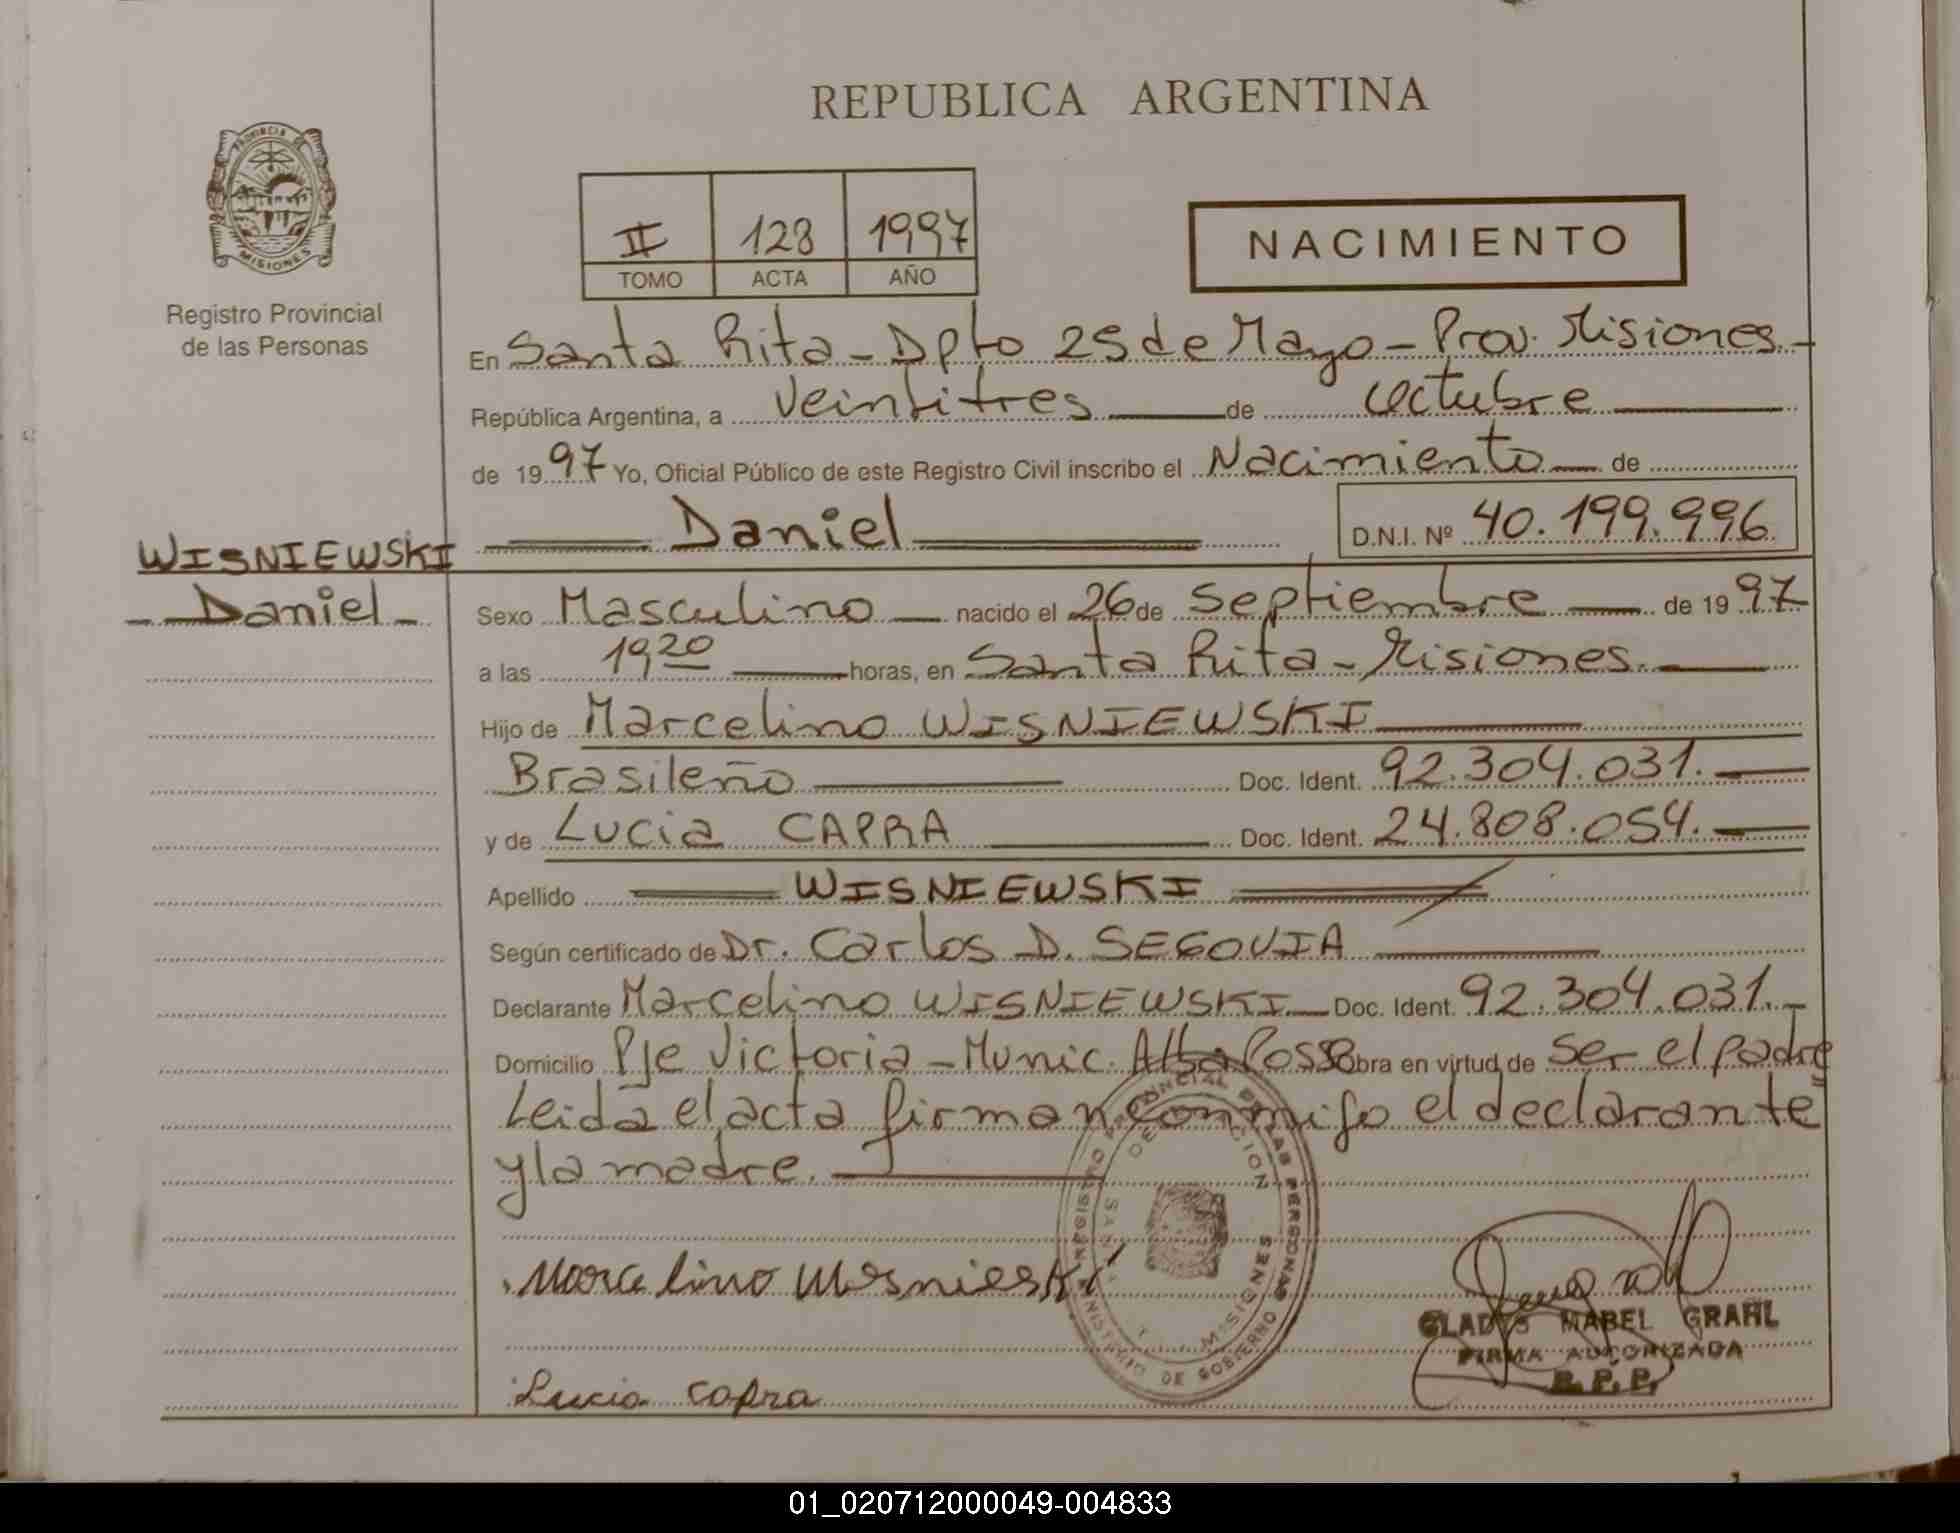 REPUBLICA ARGENTINA
PROVINCIA DE
MISIONES
Registro Provincial
de las Personas
II 128 1997
TOMO ACTA AÑO
NACIMIENTO
En Santa Rita - Dpto 25 de Mayo - Prov. Misiones -
República Argentina, a Veintitres de Octubre
de 1997 Yo, Oficial Público de este Registro Civil inscribo el Nacimiento de
Daniel D.N.I. Nº 40.199.996
WISNIEWSKI
- Daniel -
Sexo Masculino nacido el 26 de Septiembre de 1997
a las 19 20 horas, en Santa Rita - Misiones.
Hijo de Marcelino WISNIEWSKI
Brasileño Doc. Ident. 92.304.031.
y de Lucia CAPRA Doc. Ident. 24.808.054.
Apellido WISNIEWSKI
Según certificado de Dr. Carlos D. SEGOVIA
Declarante Marcelino WISNIEWSKI Doc. Ident. 92.304.031. -
Domicilio Pje Victoria - Munic. Alba Posse Obra en virtud de Ser el padre
Leida el acta firman conmigo el declarante
y la madre.
REGISTRO PROVINCIAL DE LAS PERSONAS
MINISTERIO DE GOBIERNO
MISIONES
Marcelino Wisnieski
GLADYS MABEL GRAHL
FIRMA AUTORIZADA
R. P. P.
Lucia Capra
01_020712000049-004833